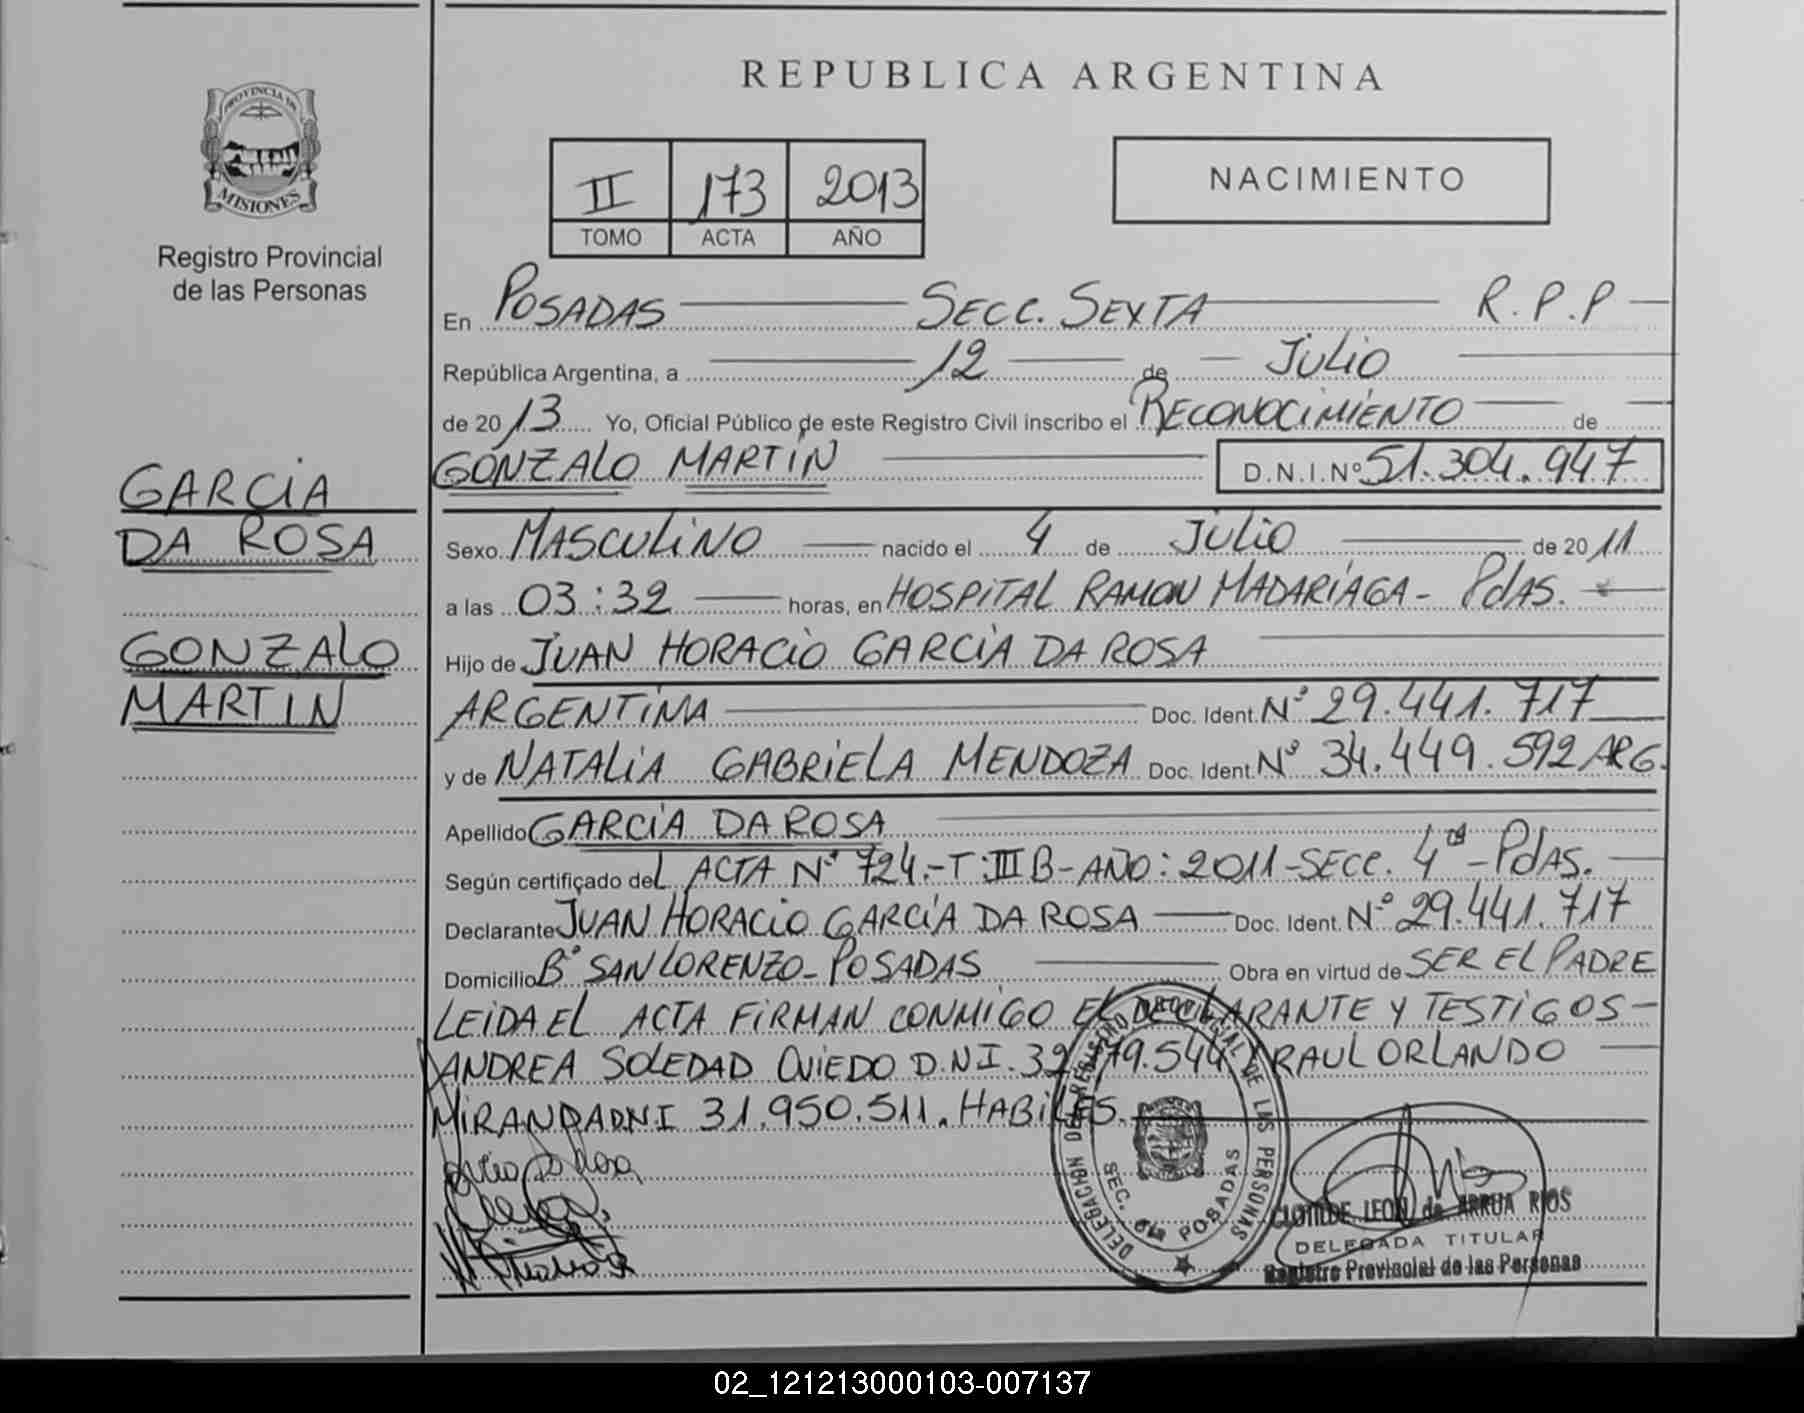 REPUBLICA ARGENTINA
PROVINCIA DE
MISIONES
Registro Provincial
de las Personas
II 173 2013
TOMO ACTA AÑO
NACIMIENTO
En POSADAS SECC. SEXTA R.P.P
República Argentina, a 12 de JULIO
de 2013 Yo, Oficial Público de este Registro Civil inscribo el RECONOCIMIENTO de
GONZALO MARTIN D.N.I.Nº 51.304.947
GARCIA
DA ROSA
GONZALO
MARTIN
Sexo MASCULINO nacido el 4 de JULIO de 2011
a las 03:32 horas, en HOSPITAL RAMON MADARIAGA - PdAS.
Hijo de JUAN HORACIO GARCIA DA ROSA
ARGENTINA Doc. Ident. Nº 29.441.717
y de NATALIA GABRIELA MENDOZA Doc. Ident. Nº 34.449.592 ARG.
Apellido GARCIA DA ROSA
Según certificado del ACTA Nº 724.-T:III B-AÑO: 2011-SECC. 4ª-PdAS.
Declarante JUAN HORACIO GARCIA DA ROSA Doc. Ident. Nº 29.441.717
Domicilio Bº SAN LORENZO-POSADAS Obra en virtud de SER EL PADRE
LEIDA EL ACTA FIRMAN CONMIGO EL DECLARANTE Y TESTIGOS-
ANDREA SOLEDAD OVIEDO D.N.I. 32. 79.544 RAUL ORLANDO
MIRANDA DNI 31.950.511. HABILES.
DELEGACION DEL REGISTRO PROVINCIAL DE LAS PERSONAS
SEC. 6ta POSADAS
CLOTILDE LEON de ARRUA RIOS
DELEGADA TITULAR
Registro Provincial de las Personas
02_121213000103-007137